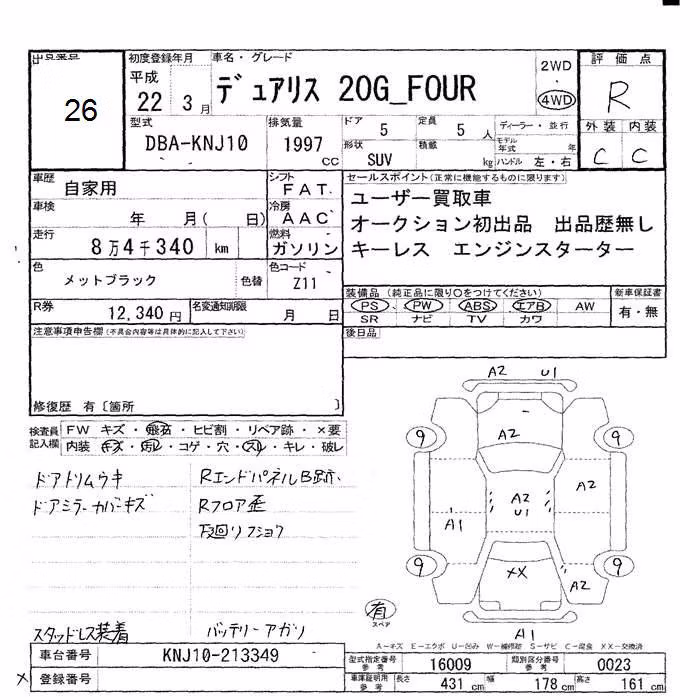 出品番号
26
初度登録年月
平成
22 3月
車名・グレード
デュアリス 20G_FOUR
2WD
4WD
評価点
R
外装 内装
C C
型式
DBA-KNJ10
排気量
1997 cc
ドア 5
定員 5 人
形状 SUV
積載 kg
ディーラー・並行
モデル年式 年
ハンドル 左・右
車歴 自家用
シフト FAT
車検 年 月( 日)
冷房 AAC
走行 8万4千340 km
燃料 ガソリン
色 メットブラック 色替
色コード Z11
R券 12,340円
名変通知期限 月 日
セールスポイント(正常に機能するものに限ります)
ユーザー買取車
オークション初出品 出品歴無し
キーレス エンジンスターター
装備品 (純正品に限り○をつけてください)
PS ・ PW ・ ABS ・ エアB ・ AW
SR ナビ TV カワ
新車保証書
有・無
後日品
注意事項申告欄(不具合内容等は具体的に記入して下さい)
修復歴 有〔箇所 〕
検査員記入欄
FW キズ ・ 飛石 ・ ヒビ割 ・ リペア跡 ・ ×要
内装 キズ ・ 汚レ ・ コゲ ・ 穴 ・ スレ ・ キレ ・ 破レ
ドアトリムウキ
ドアミラーカバーキズ
スタッドレス装着
RエンドパネルB跡、
Rフロア歪
バッテリーアガリ
A2 U1
9 9
A2
A2
A2
U1
A1
9 9
XX
A2
A1
有
スペア
A-キズ E-エクボ U-凹み W-補修跡 S-サビ C-腐食 XX-交換済
車台番号 KNJ10-213349
登録番号
型式指定番号 参考 16009
類別区分番号 参考 0023
車庫証明用 参考 長さ 431 cm 幅 178 cm 高さ 161 cm